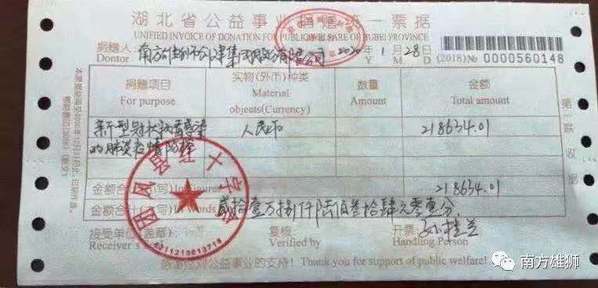 湖北省公益事业捐赠统一票据
UNIFIED INVOICE OF DONATION FOR PUBLIC WELFARE OF HUBEI PROVINCE
捐赠人: 2020年1月28日 (2018) № 0000560148
Dontor
捐赠项目 实物(外币)种类 数量 金额
For purpose Material objects(Currency) Amount Total amount
新型冠状病毒感染 人民币 218634.01
的肺炎疫情防控
金额合计(小写)In Figures 218634.01
金额合计(大写)In Words 贰拾壹万捌仟陆佰叁拾肆元零壹分
接受单位(盖章): 复核: 开票: 孙桂兰
Receiver's Verified by Handling Person
感谢您对公益事业的支持! Thank you for support of public welfare!
团风县红十字会
4211210013718
南方雄狮